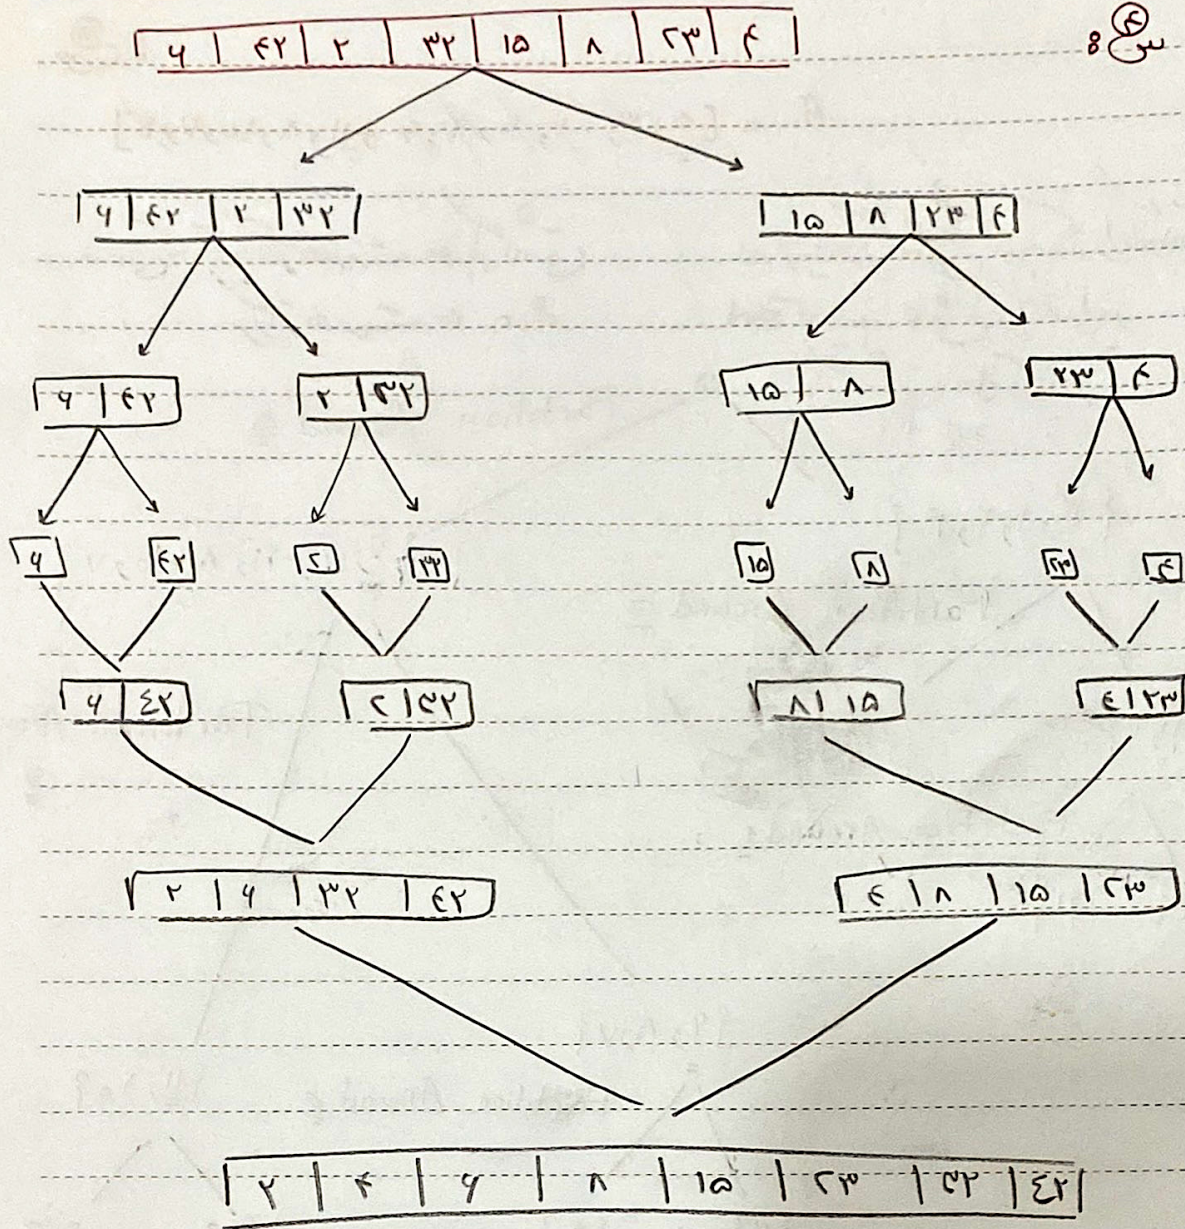 ۴ س :
۶ ۴۲ ۲ ۳۲ ۱۵ ۸ ۲۳ ۴
۶ ۴۲ ۲ ۳۲ ۱۵ ۸ ۲۳ ۴
۶ ۴۲ ۲ ۳۲ ۱۵ ۸ ۲۳ ۴
۶ ۴۲ ۲ ۳۲ ۱۵ ۸ ۲۳ ۴
۶ ۴۲ ۲ ۳۲ ۸ ۱۵ ۴ ۲۳
۲ ۶ ۳۲ ۴۲ ۴ ۸ ۱۵ ۲۳
۲ ۴ ۶ ۸ ۱۵ ۲۳ ۳۲ ۴۲